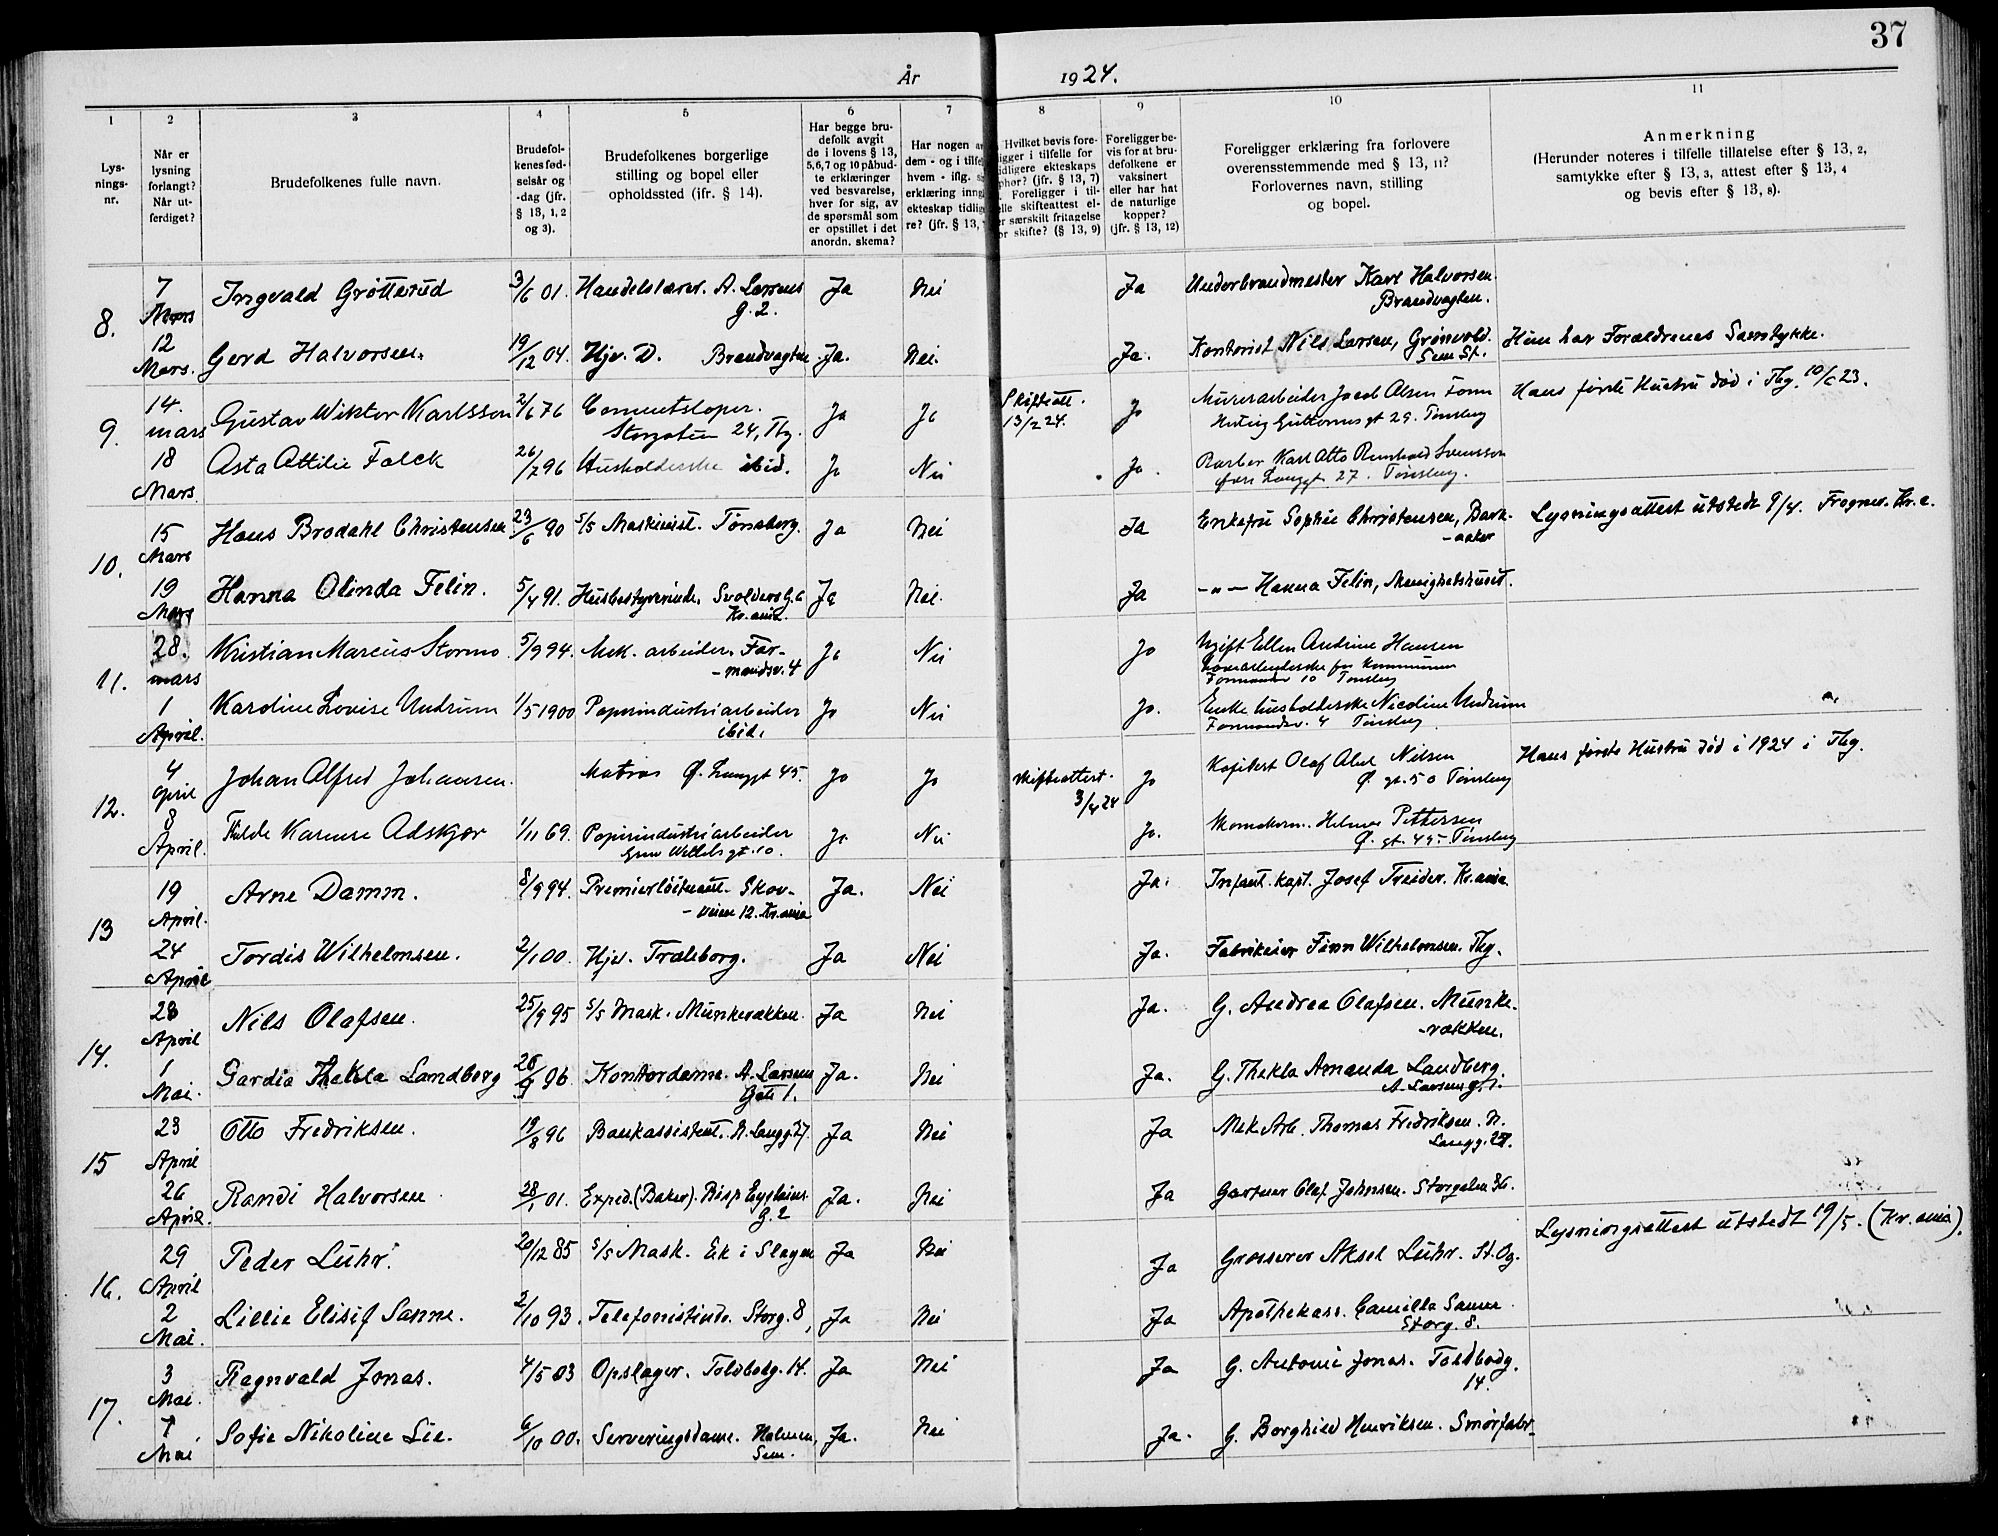 37
År 1924.
1 2 3 4 5 6 7 8 9 10 11
Lys-
nings-
nr.
Når er
lysning
forlangt?
Når ut-
ferdiget?
Brudefolkenes fulle navn.
Brudefol-
kenes fød-
selsår og
-dag (jfr.
§ 13, 1, 2
og 3).
Brudefolkenes borgerlige
stilling og bopel eller
opholdssted (jfr. § 14).
Har begge bru-
defolk avgit
de i lovens § 13,
5, 6, 7 og 10 påbud-
te erklæringer
ved besvarelse,
hver for sig, av
de spørsmål som
er opstillet i det
anordn. skema?
Har nogen
dem - og i tilfe
hvem - iflg.
erklæring inng
ekteskap tidlig
re? (jfr. § 13,
Hvilket bevis fore-
ligger i tilfelle for
idligere ekteskaps
phør? (jfr. § 13, 7)
Foreligger i til-
elle skifteattest el-
er særskilt fritagelse
or skifte? (§ 13, 9)
Foreligger be-
vis for at bru-
defolkene er
vaksinert
eller har hat
de naturlige
kopper?
(jfr. § 13, 12)
Foreligger erklæring fra forlovere
overensstemmende med § 13, 11?
Forlovernes navn, stilling
og bopel.
Anmerkning
(Herunder noteres i tilfelle tillatelse efter § 13, 2,
samtykke efter § 13, 3, attest efter § 13, 4
og bevis efter § 13, 8).
8.
7 Mars Ingvald Grötterud 3/6 01. Handelslærer. A. Larsens Ja Nei Ja Underbrandmester Karl Halvorsen.
G. 2. Brandvagten.
12 Mars. Gerd Halvorsen. 19/12 04. Hjv. D. Brandvagten Ja. Nei. Ja. Kontorist Nils Larsen, Grönvold. Hun har Forældrenes Samtykke.
Sem St.
9.
14. mars Gustav Wiktor Karlsson 2/6 76 Cementstøper. Ja Ja Skifteatt. Ja Murerarbeider Jacob Olsen Hans første Hustru død i Tbg. 10/6 23.
Storgaten 24, Tbg. 13/2 24. Hertug Guttormsgt 29. Tønsberg
18 Mars. Asta Attilie Falck 26/7 96 Husholderske ibid. Ja Nei Ja. Barber Karl Otto Reinhold Svensson
Langgt. 27. Tønsberg.
10.
15 Mars Hans Brodahl Christensen 23/6 90 S/S Maskinist. Tønsberg. Ja Nei Ja Enkefru Sophie Christensen, Bark- Lysningsattest utstedt 9/4. Frogner. Kr.a.
-aaker
19 Mars Hanna Olinda Felin. 5/4 91. Husbestyrerinde. Svolders G. 6 Ja Nei. Ja -"- Hanna Felin, Menighetshuset.
Kr.ania.
11.
28. mars Kristian Marcus Stormo. 5/9 94. Mek. arbeider. Far- Ja Nei Ja Ugift Ellen Andrine Hansen
-mandsv. 4
10 Tønsberg
1 April. Karoline Lovise Undrum 1/5 1900 Papirindustriarbeider Ja Nei Ja. Enke husholderske Nicoline Undrum
ibid. Farmandsv. 4 Tønsberg
12.
4 April Johan Alfred Johansen. Matros Ø. Langgt 45. Ja Ja Skifteattest. Ja Olaf Abel Nilsen Hans første Hustru død i 1924 i Tbg.
3/4 24 Ø. gt. 50 Tønsberg
8 April. Karense Adskjær 1/11 69. Papirindustriarbeider Ja Nei Ja. Skomakerm. Helmer Pettersen
Grev Wedels gt. 10. Ø. gt. 45- Tønsberg
13
19 April. Arne Damm. 8/9 94. Premierløitnant. Skov- Ja. Nei Ja. Infant. kapt. Josef Treider. Kr.ania
-veien 12. Kr.ania
24 April Tordis Wilhelmsen. 2/1 00. Hjv. Træleborg. Ja Nei Ja. Fabrikeier Finn Wilhelmsen. Tbg.
14.
23 April Nils Olafsen. 25/9 95 S/S Mask. Munkerækken. Ja Nei Ja. G. Andrea Olafsen. Munke-
-rækken.
1 Mai. Gardia Thekla Landberg 26/9 96. Kontordame. A. Larsens Ja. Nei Ja. G. Thekla Amanda Landberg.
Gate 1. A. Larsens g. 1.
15
23 April Otto Fredriksen. 19/8 96 Bankassistent. N. Langg. 27. Ja Nei Ja Mek. Arb. Thomas Fredriksen. N.
Langg. 27.
26 April. Randi Halvorsen 28/1 01. Exped. (Baker). Bisp Eysteins Ja. Nei Ja Gartner Olaf Johnsen. Storgaten 36.
G. 2
16.
29 April Peder Lühr. 20/12 85 S/S Mask. Ek i Slagen Ja Nei Ja Grosserer Aksel Lühr. St. Og. Lysningsattest utstedt 19/5. (Kr.ania).
2 Mai. Lillie Elisif Sanne. 2/10 93. Telefonistinde. Storg. 8, Ja Nei Ja Apothekass. Camilla Sanne.
Storg. 8.
17.
3 Mai. Ragnvald Jonas. 4/5 03 Opslager. Toldbodg. 14. Ja Nei Ja G. Antonie Jonas. Toldbodg.
14.
7 Mai Sofie Nikoline Lie. 6/10 00. Serveringsdame. Holmen, Ja. Nei Ja. G. Borghild Henriksen. Smörfabr-
Sem.